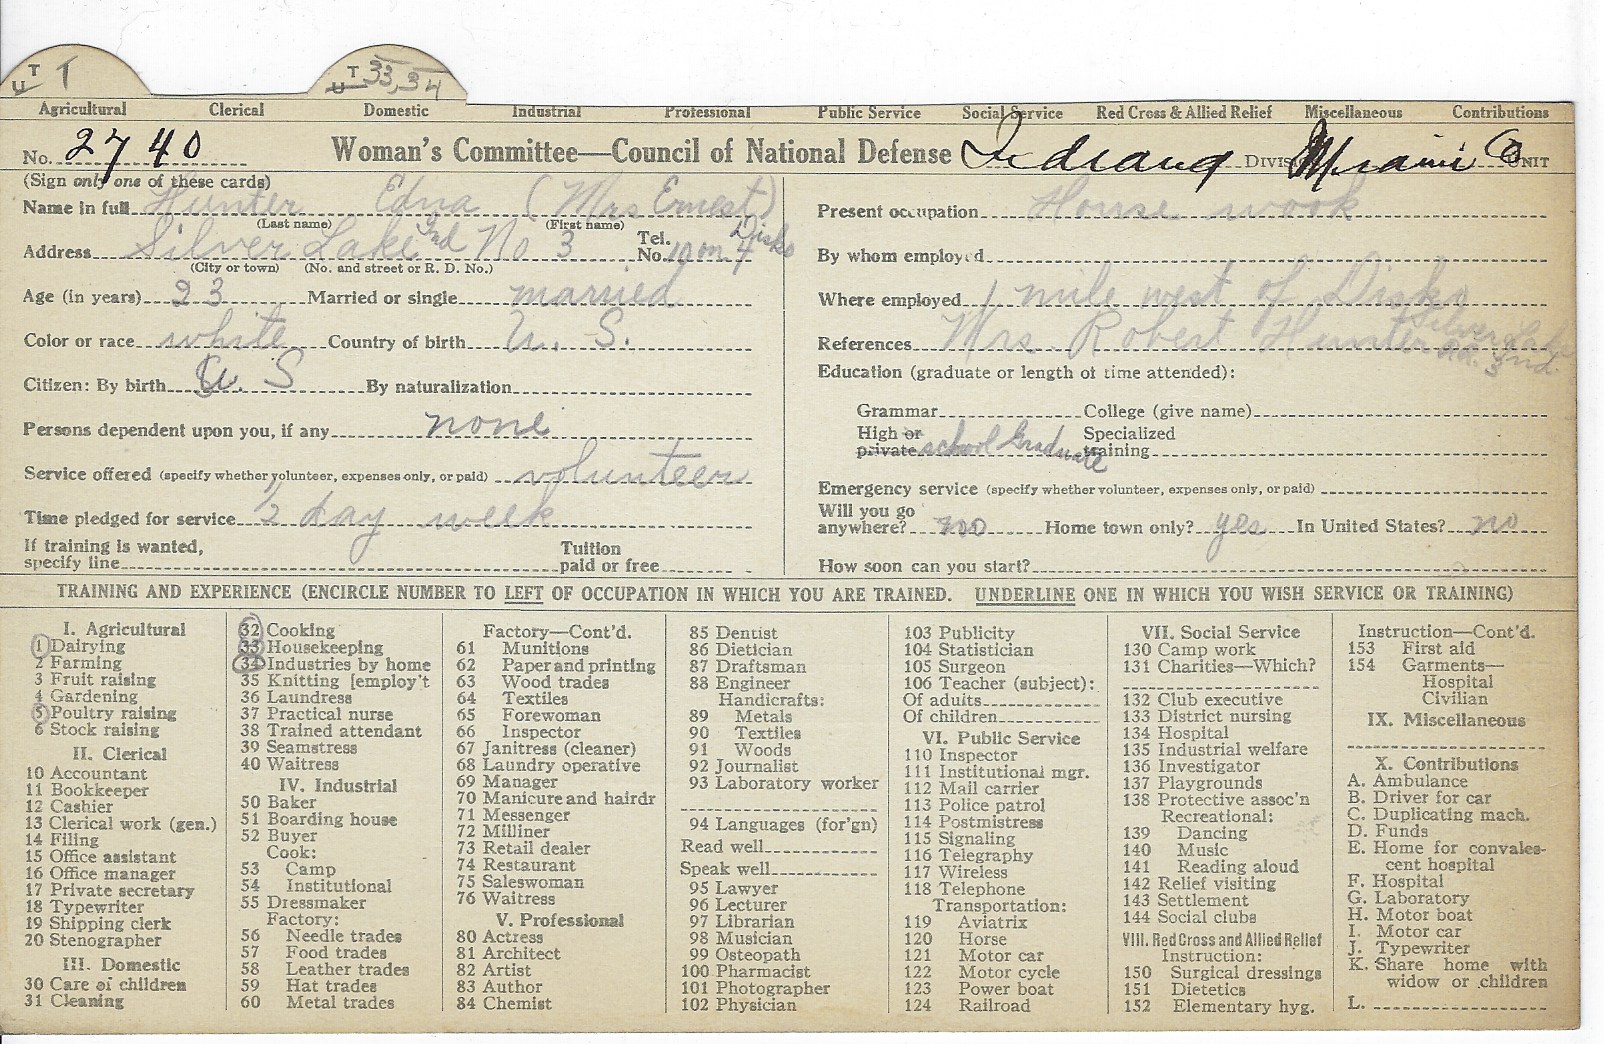 T U 1 T U 33, 34
Agricultural Clerical Domestic Industrial Professional Public Service Social Service Red Cross & Allied Relief Miscellaneous Contributions
No. 2740 Woman's Committee—Council of National Defense Indiana DIVISION Miami Co UNIT
(Sign only one of these cards)
Name in full Hunter Edna (Mrs Ernest)
(Last name) (First name)
Address Silver Lake Ind No 3 Tel. No. 10 on 4 Disko
(City or town) (No. and street or R. D. No.)
Age (in years) 23 Married or single married
Color or race white Country of birth U. S.
Citizen: By birth U. S By naturalization
Persons dependent upon you, if any none
Service offered (specify whether volunteer, expenses only, or paid) volunteer
Time pledged for service 1/2 day week
If training is wanted, specify line Tuition paid or free
Present occupation House work
By whom employed
Where employed 1 mile west of Disko
References Mrs. Robert Hunter Silver Lake Rd. 3 Ind.
Education (graduate or length of time attended):
Grammar College (give name)
High or private school Graduate Specialized training
Emergency service (specify whether volunteer, expenses only, or paid)
Will you go anywhere? no Home town only? yes In United States? no
How soon can you start?
TRAINING AND EXPERIENCE (ENCIRCLE NUMBER TO LEFT OF OCCUPATION IN WHICH YOU ARE TRAINED. UNDERLINE ONE IN WHICH YOU WISH SERVICE OR TRAINING)
I. Agricultural
1 Dairying
2 Farming
3 Fruit raising
4 Gardening
5 Poultry raising
6 Stock raising
II. Clerical
10 Accountant
11 Bookkeeper
12 Cashier
13 Clerical work (gen.)
14 Filing
15 Office assistant
16 Office manager
17 Private secretary
18 Typewriter
19 Shipping clerk
20 Stenographer
III. Domestic
30 Care of children
31 Cleaning
32 Cooking
33 Housekeeping
34 Industries by home
35 Knitting [employ't
36 Laundress
37 Practical nurse
38 Trained attendant
39 Seamstress
40 Waitress
IV. Industrial
50 Baker
51 Boarding house
52 Buyer
Cook:
53 Camp
54 Institutional
55 Dressmaker
Factory:
56 Needle trades
57 Food trades
58 Leather trades
59 Hat trades
60 Metal trades
Factory—Cont'd.
61 Munitions
62 Paper and printing
63 Wood trades
64 Textiles
65 Forewoman
66 Inspector
67 Janitress (cleaner)
68 Laundry operative
69 Manager
70 Manicure and hairdr
71 Messenger
72 Milliner
73 Retail dealer
74 Restaurant
75 Saleswoman
76 Waitress
V. Professional
80 Actress
81 Architect
82 Artist
83 Author
84 Chemist
85 Dentist
86 Dietician
87 Draftsman
88 Engineer
Handicrafts:
89 Metals
90 Textiles
91 Woods
92 Journalist
93 Laboratory worker
94 Languages (for'gn)
Read well
Speak well
95 Lawyer
96 Lecturer
97 Librarian
98 Musician
99 Osteopath
100 Pharmacist
101 Photographer
102 Physician
103 Publicity
104 Statistician
105 Surgeon
106 Teacher (subject):
Of adults
Of children
VI. Public Service
110 Inspector
111 Institutional mgr.
112 Mail carrier
113 Police patrol
114 Postmistress
115 Signaling
116 Telegraphy
117 Wireless
118 Telephone
Transportation:
119 Aviatrix
120 Horse
121 Motor car
122 Motor cycle
123 Power boat
124 Railroad
VII. Social Service
130 Camp work
131 Charities—Which?
132 Club executive
133 District nursing
134 Hospital
135 Industrial welfare
136 Investigator
137 Playgrounds
138 Protective assoc'n
Recreational:
139 Dancing
140 Music
141 Reading aloud
142 Relief visiting
143 Settlement
144 Social clubs
VIII. Red Cross and Allied Relief
Instruction:
150 Surgical dressings
151 Dietetics
152 Elementary hyg.
Instruction—Cont'd.
153 First aid
154 Garments—
Hospital
Civilian
IX. Miscellaneous
X. Contributions
A. Ambulance
B. Driver for car
C. Duplicating mach.
D. Funds
E. Home for convales-
cent hospital
F. Hospital
G. Laboratory
H. Motor boat
I. Motor car
J. Typewriter
K. Share home with
widow or children
L.